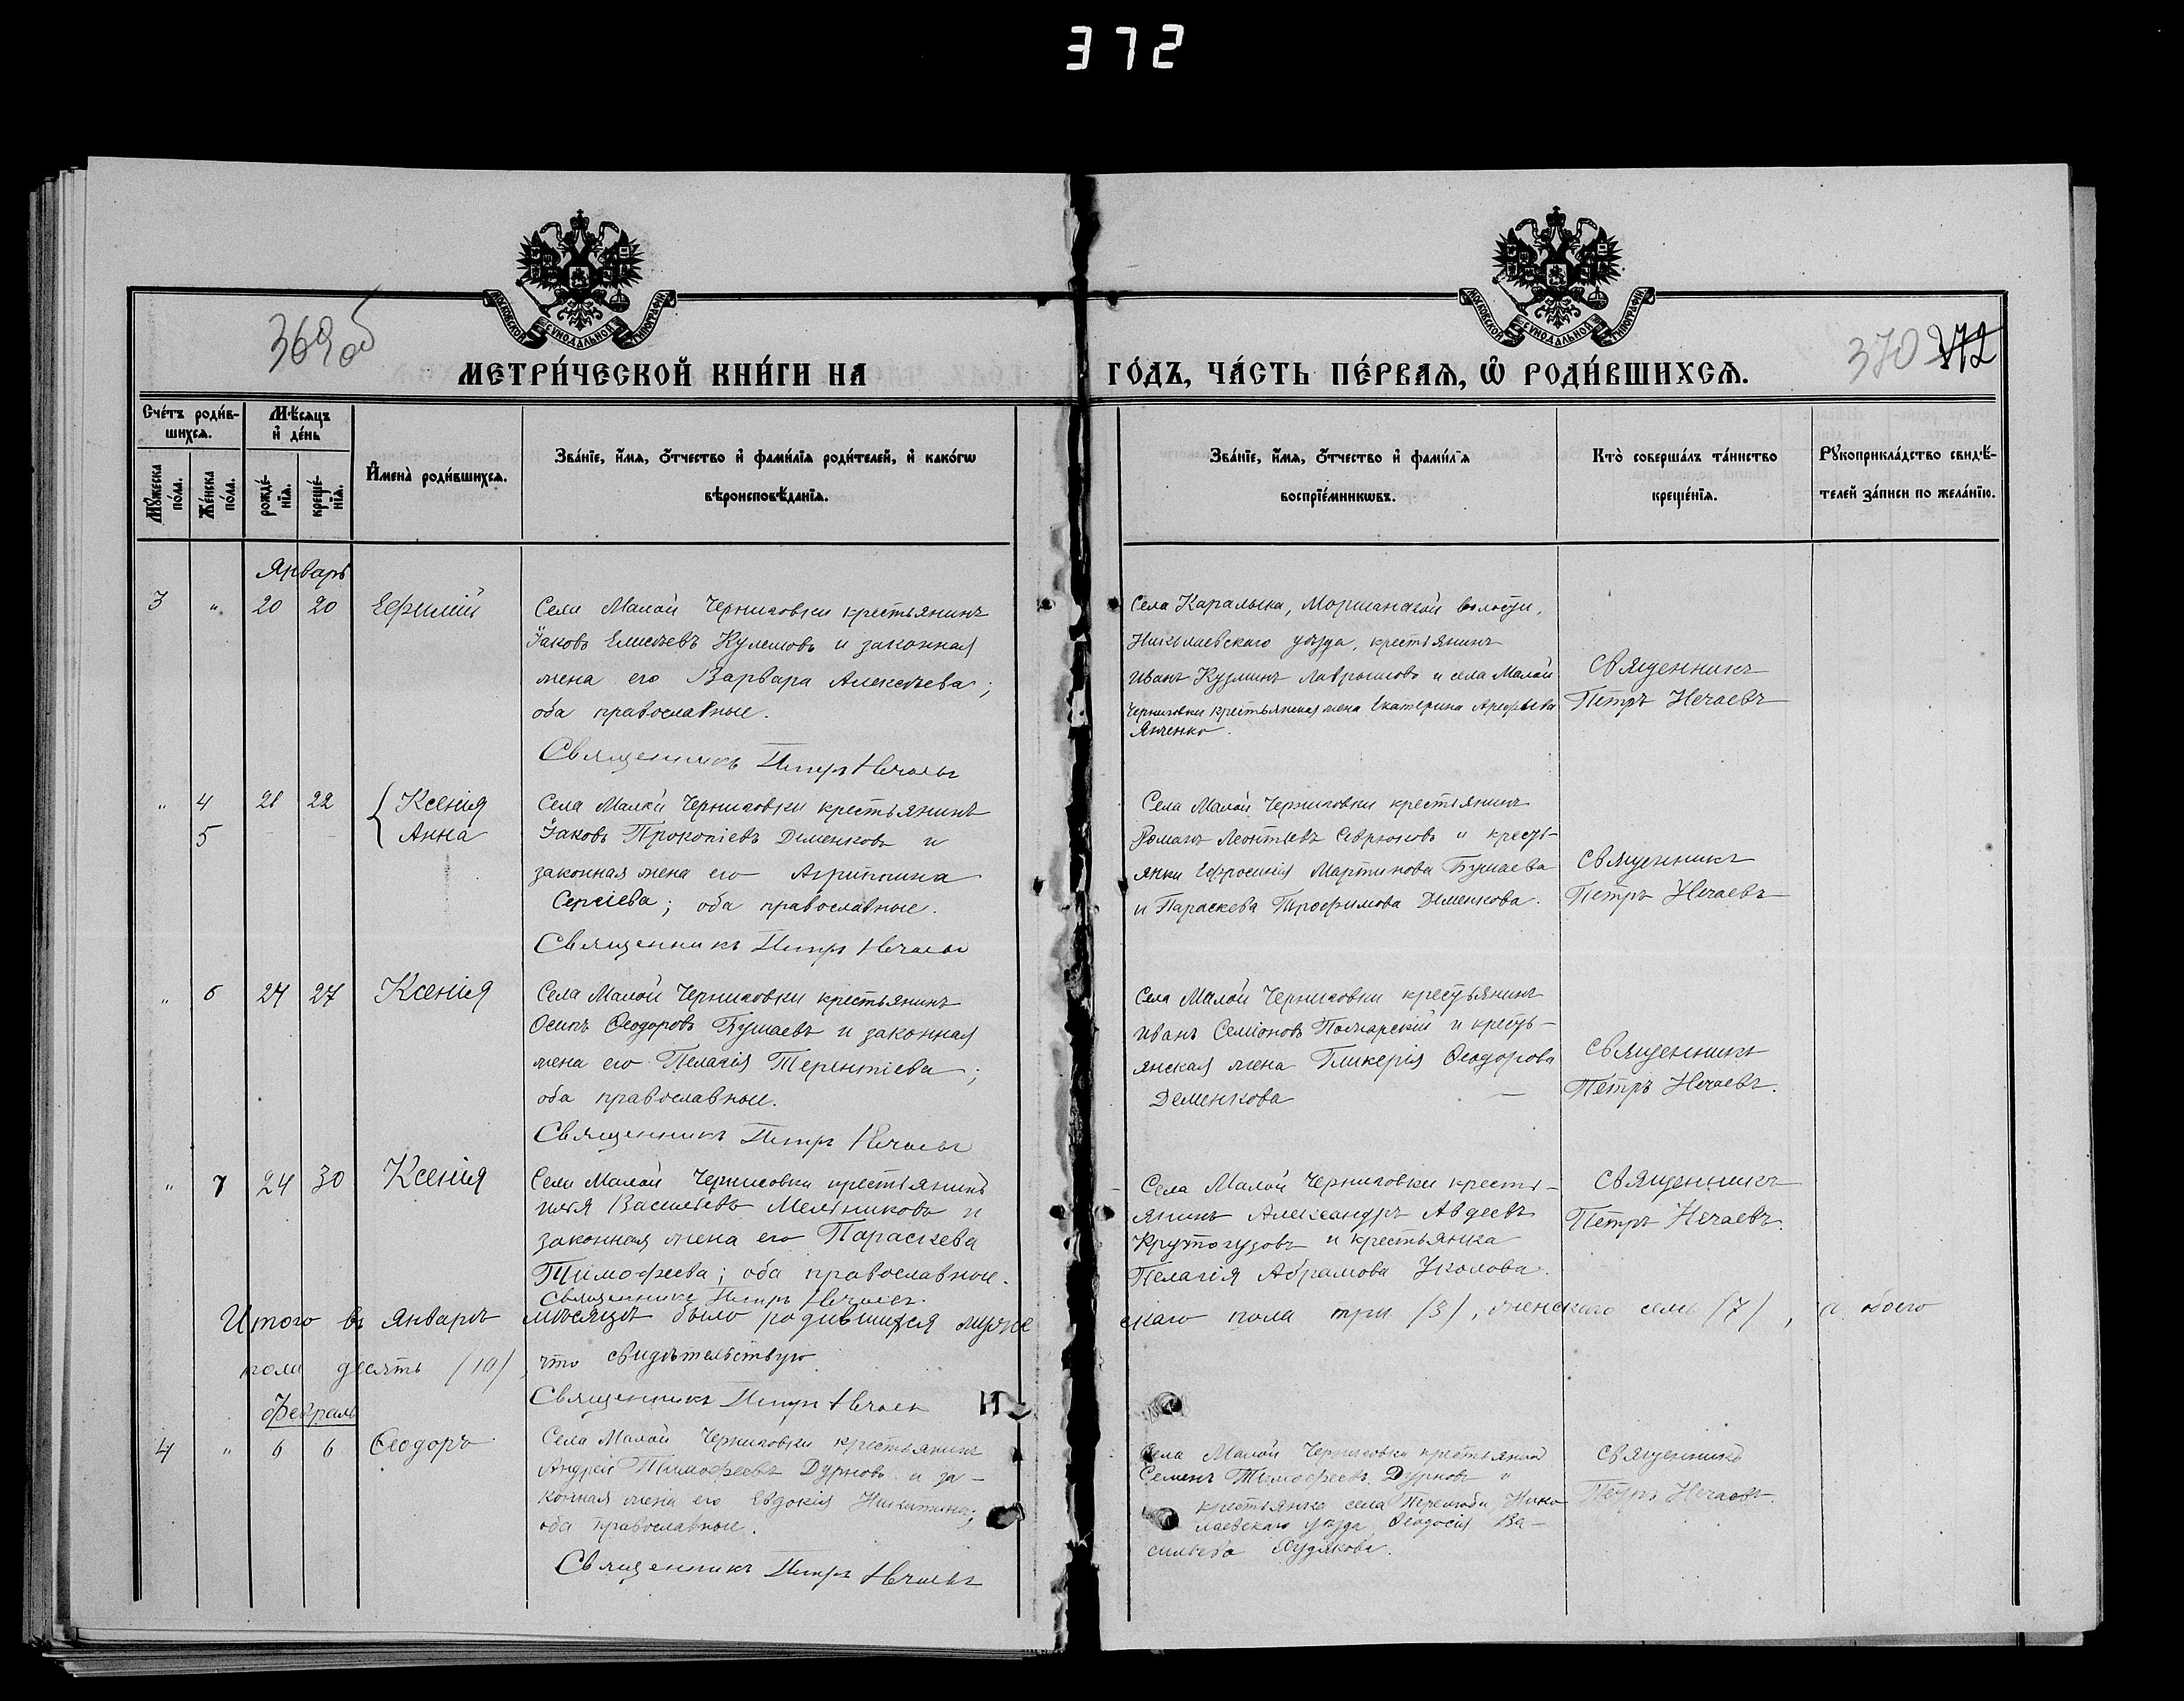 372
МОСКОВСКОЙ СѴНОДАЛЬНОЙ ТИПОГРАФІИ
МОСКОВСКОЙ СѴНОДАЛЬНОЙ ТИПОГРАФІИ
369об
370 372
МЕТРИ́ЧЕСКОЙ КНИ́ГИ НА
ГО́ДЪ, ЧА́СТЬ ПЕ́РВАѦ, Ѽ РОДИ́ВШИХСѦ.
Сче́тъ роди́в-
шихсѧ.
Мѣ́сѧцъ
и҆ де́нь
Мꙋ́жеска
по́ла.
Же́нска
по́ла.
рожде́-
нїѧ.
креще́-
нїѧ.
И҆мена̀ роди́вшихсѧ.
Зва́нїе, и҆́мѧ, ѻ҆́тчество и҆ фами́лїѧ роди́телей, и҆ како́гѡ
вѣроисповѣ́данїѧ.
Зва́нїе, и҆́мѧ, ѻ҆́тчество и҆ фами́лїѧ
воспрїе́мникѡвъ.
Кто̀ соверша́лъ та́инство
креще́нїѧ.
Рꙋкоприкла́дство свидѣ́-
телей за́писи по жела́нїю.
Январь
3 " 20 20 Ефимій
Села Малой Черниговки крестьянинъ
Іаковъ Елисѣевъ Кулешовъ и законная
жена его Варвара Алексѣева;
оба православные.
Священникъ Петръ Нечаевъ
Села Каралыка, Моршанской волости,
Николаевскаго уѣзда, крестьянинъ
Иванъ Кузминъ и села Малой
Черниговки крестьянская жена Екатерина Арефьева
Янченко.
Священникъ
Петръ Нечаевъ
" 4 21 22 Ксенія
5 Анна
Села Малой Черниговки крестьянинъ
Іаковъ Прокопіевъ Деменковъ и
законная жена его Агриппина
Сергіева; оба православные.
Священникъ Петръ Нечаевъ
Села Малой Черниговки крестьянинъ
Романъ Леонтьевъ Севрюковъ и кресть-
янки Евфросинія Мартинова Бушаева
и Параскева Трофимова Деменкова.
Священникъ
Петръ Нечаевъ
" 6 24 27 Ксенія
Села Малой Черниговки крестьянинъ
Осипъ Ѳеодоровъ Бушаевъ и законная
жена его Пелагія Терентіева;
оба православные.
Священникъ Петръ Нечаевъ
Села Малой Черниговки крестьянинъ
Иванъ Семіоновъ Пожарскій и кресть-
янская жена Гликерія Ѳеодорова
Деменкова
Священникъ
Петръ Нечаевъ.
" 7 24 30 Ксенія
Села Малой Черниговки крестьянинъ
Илія Васильевъ Мельниковъ и
законная жена его Параскева
Тимофеева; оба православные.
Священникъ Петръ Нечаевъ.
Села Малой Черниговки кресть-
янинъ Александръ Авдеевъ
Крутогузовъ и крестьянка
Пелагія Абрамова Уколова.
Священникъ
Петръ Нечаевъ.
Итого въ январѣ мѣсяцѣ было родившихся муже
скаго пола три (3), женскаго семь (7), а обоего
пола десять (10), что свидѣтельствую
Священникъ Петръ Нечаевъ
Февраль
4 " 6 6 Ѳеодоръ
Села Малой Черниговки крестьянинъ
Андрей Тимофеевъ Дурновъ и за-
конная жена его Евдокія Никитина;
оба православные.
Священникъ Петръ Нечаевъ
Села Малой Черниговки крестьянинъ
Семенъ Тимофеевъ Дурновъ и
крестьянка села Перелюба Нико-
лаевскаго уѣзда Ѳеодосія Ва-
сильева Худякова.
Священникъ
Петръ Нечаевъ.